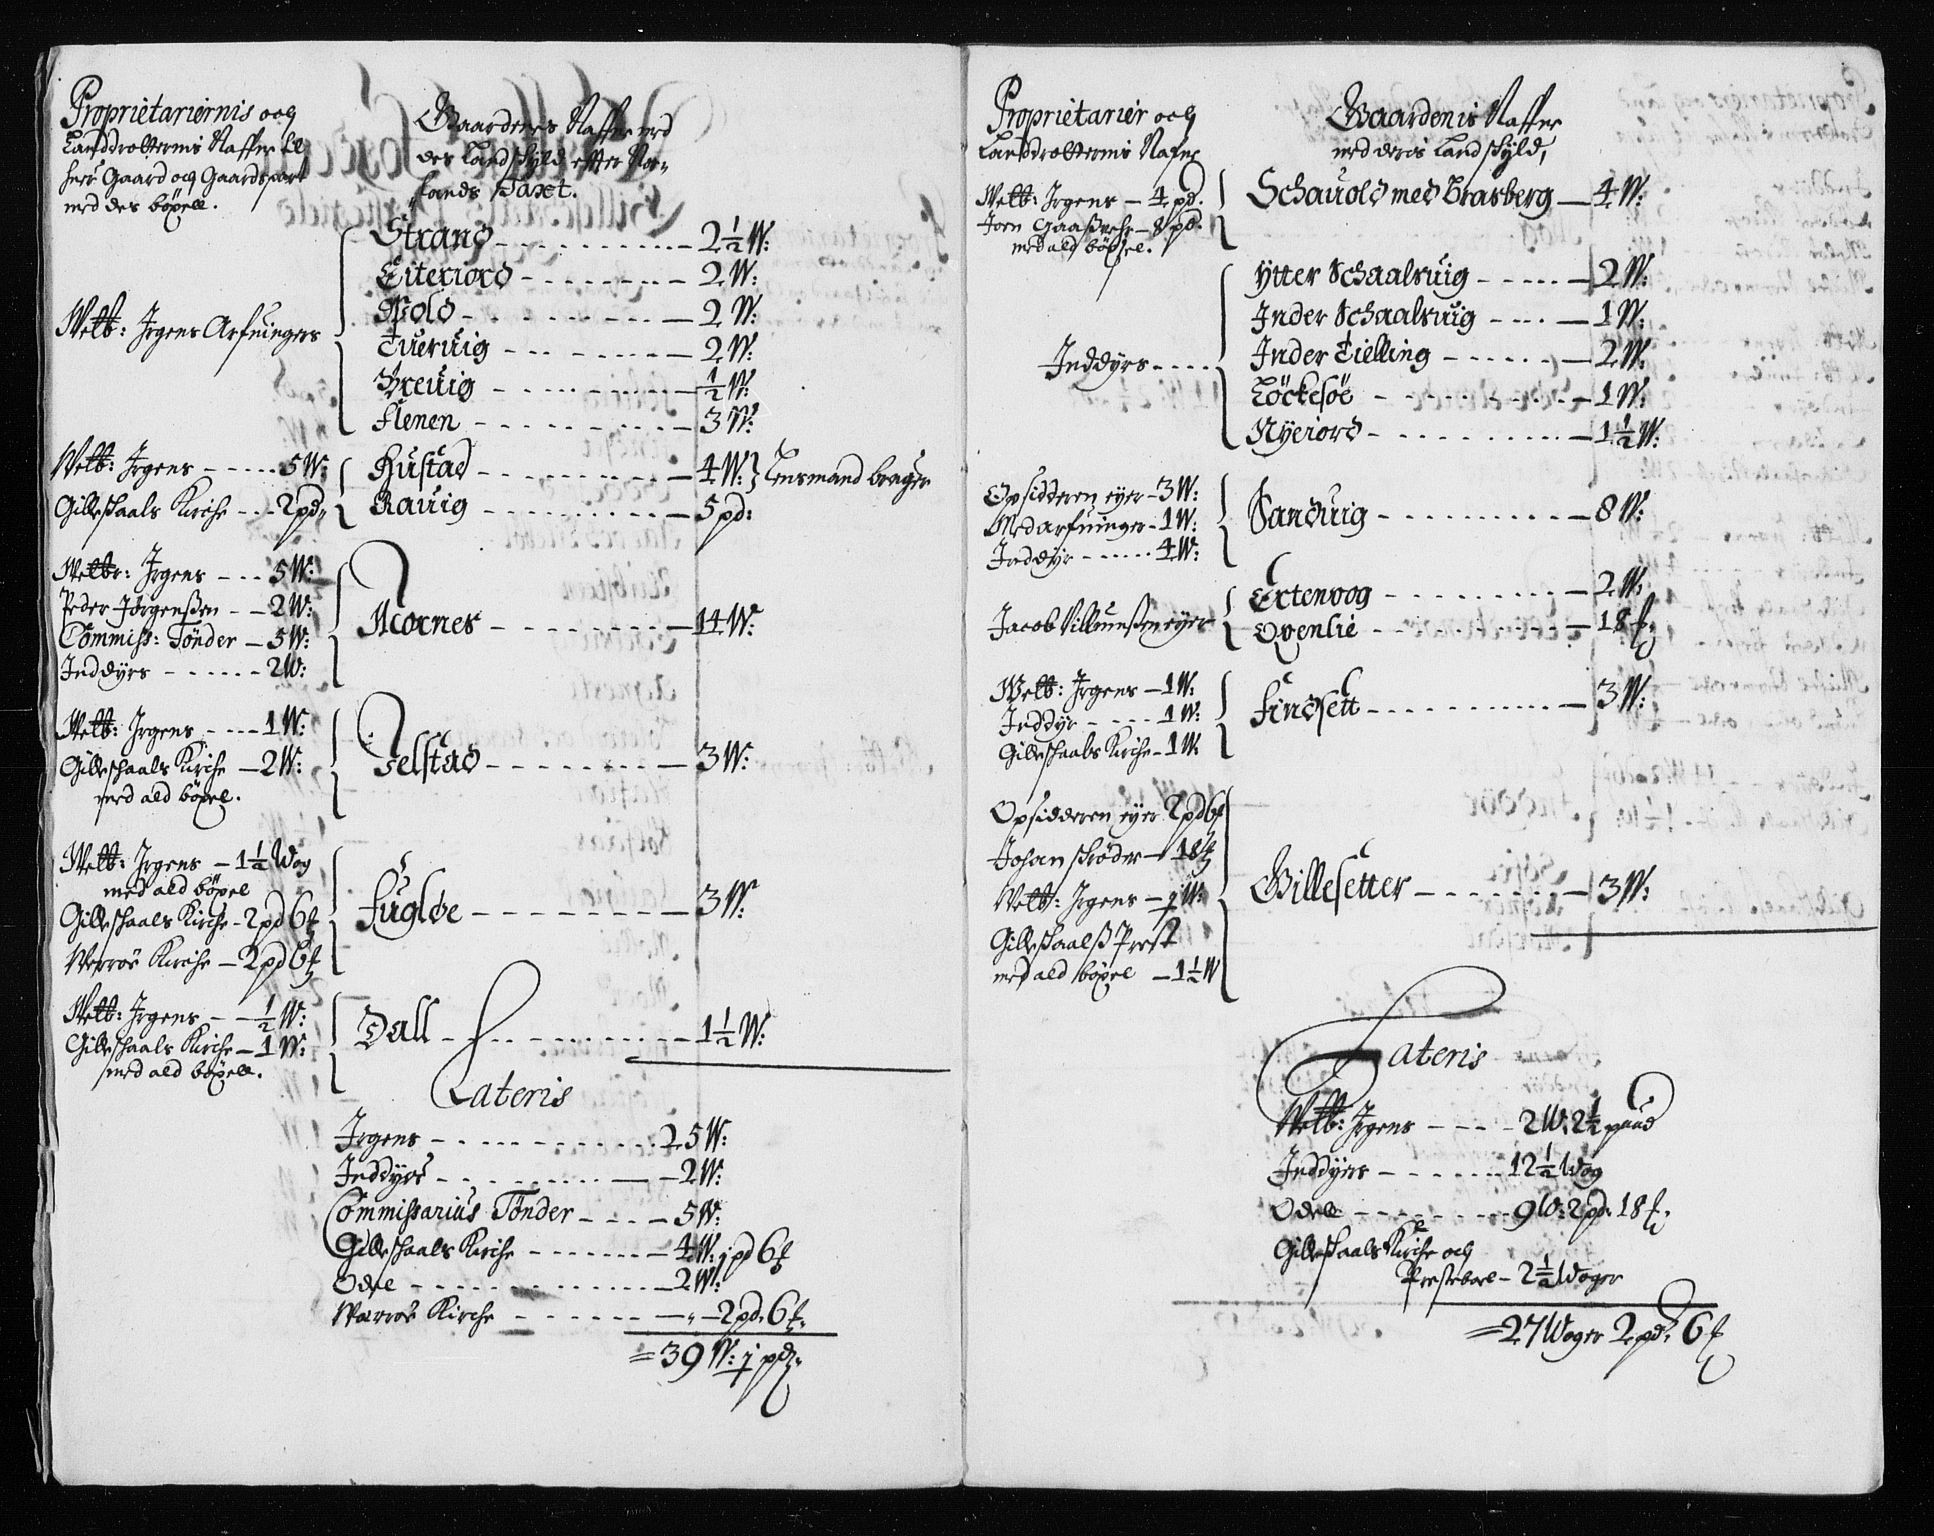 Proprietariernis och
Landdrotternis Naffne til
huer Gaard och Gaardspart
med des böxell.
Gaardenes Nafne med
des Landschyld effter Nor-
lands Taxt.
Welb: Irgens Arfuinger
Strand - 2½ W:
Eiteriord - 2 W:
Øfold - 2 W:
Tueruig - 2 W:
Breuig - ½ W:
Flenen - 3 W:
Welb: Irgens - 5 W:
Gilleschaals Kirche - 2 pd
Hustad - 4 W: Lensmand bruger
Rauig - 5 pd:
Welb: Irgens - 5 W:
Peder Jörgenßen - 2 W:
Commiss: Tönder - 5 W:
Inddÿrs - 2 W:
Mornes - 14 W:
Welb: Irgens - 1 W:
Gilleschaals Kirche - 2 W:
med ald böxel.
Felstad - 3 W:
Welb: Irgens - 1½ Wog
med ald böxel
Gilleschaals Kirche - 2 pd 6 ƒ
Werröe Kirche - 2 pd 6 ƒ
Fugløe - 3 W:
Welb: Irgens - ½ W:
Gilleschaals Kirche - 1 W:
med ald böxell.
Dall - 1½ W:
Lateris
Irgens - 25 W:
Inddyrs - 2 W:
Commissarius Tönder - 5 W:
Gilleschaals Kirche - 4 W: 1 pd 6 ƒ
Odel - 2 W:
Werröe Kirche - 2 pd. 6 ƒ.
= 39 W: 1 pd.
Proprietarier och
Landdrotternis Nafne
Gaardenis Naffne
med deris Landschyld,
Welb: Irgens - 4 pd.
Joen - 8 pd.
med ald böxel.
Schauold med Brasberg - 4 W:
Inddÿrs
Ytter Schaalsuig - 2 W:
Inder Schaalsuig - 1 W:
Inder Tielling - 2 W.
Löckesöe - 1 W:
Nyeiord - 1½ W:
Opsidderen eÿer - 3 W:
Medarfuinger - 1 W:
Inddÿr - 4 W:
Sanduig - 8 W:
Jacob Villumßen eÿer
Extenoog - 2 W.
Ovenlie - 18 ƒ
Welb: Irgens - 1 W:
Inddÿr - 1 W:
Gilleschaals Kirche - 1 W.
Findsett - 3 W:
Opsidderen eÿer 2 pd 6 ƒ
Johan Schröder - 18 ƒ
Welb: Irgens - 1 W:
Gilleschaalß Prest
med ald böxel - 1½ W
Gillesetter - 3 W:
Lateris
Welb: Irgens - 2 W. 2½ pund
Inddÿrs - 12½ Wog
Odell - 9 W: 2 pd. 18 ƒ.
Gilleschaals Kirche och
Prestebol - 2½ Woger
= 27 Woger 2 pd. 6 ƒ